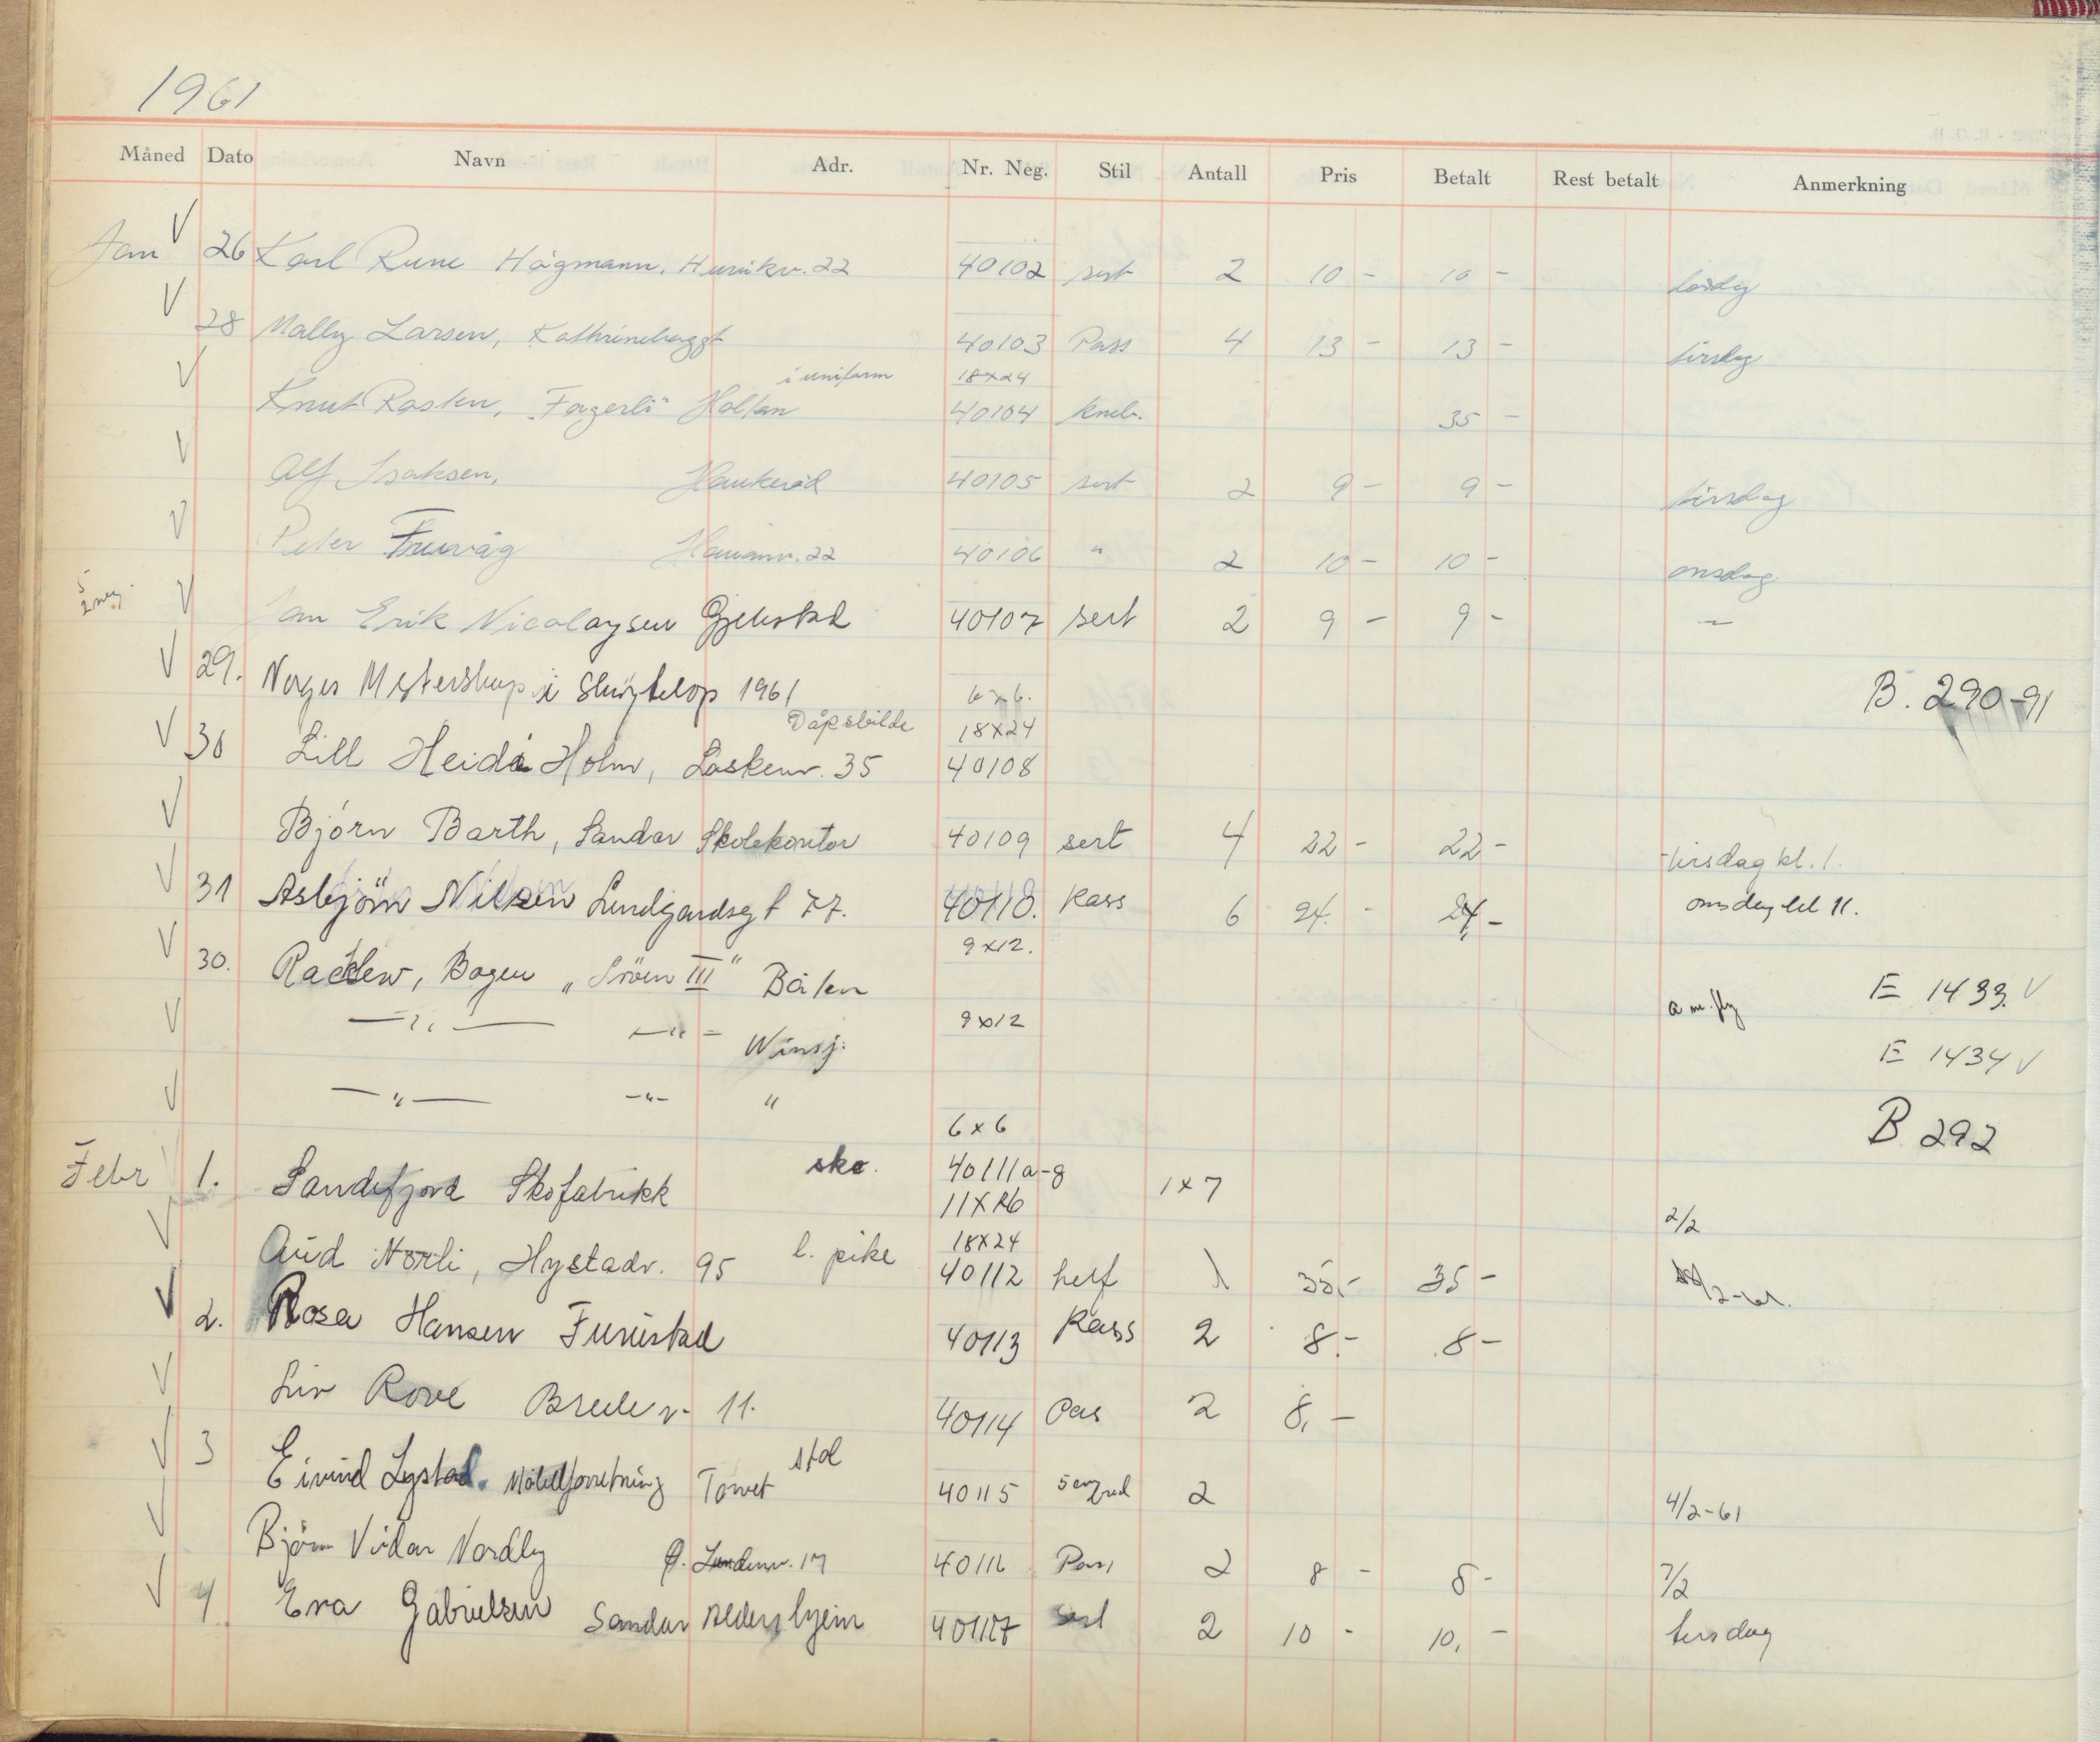 1961
Måned Dato Navn Adr. Nr. Neg. Stil Antall Pris Betalt Rest betalt Anmerkning
Jan V 26 Karl Rune Hågmann, 22 40102 sert 2 10 - 10 -
V 28 Mally Larsen, 40103 Pass 4 13 - 13 - tirsdag
i uniform 18x24
V Knut Rasten, "Fagerli" Holtan 40104 kneb. 35 -
V Alf Isaksen, Haukerød 40105 sert 2 9 - 9 - tirsdag
V Peter Furuvåg 22 40106 " 2 10 - 10 - onsdag
5 2 neg. V Jan Erik Nicolaysen Gjekstad 40107 sert 2 9 - 9 - -"-
V 29. Norges Mesterskap i 1961 6x6. B. 290-91
Dåpsbilde 18x24
V 30 Lill Heidi Holm, 35 40108
V Björn Barth, Sandar Skolekontor 40109 sert 4 22 - 22 - tirsdag kl. 1.
V 31 Asbjörn Nilsen Lindgardsgt 77. 40110. Pass 6 24. - 24,- onsdag kl 11.
V 30. Bogen III" Båten 9x12. E 1433. V
V -"- -"- 9x12 E 1434 V
V -"- -"- " 6x6 B 292
Febr V 1. Sandefjord Skofabrikk sko. 40111a-g 1x7
11x16 2/2
18x24
V Norli, Hystadv. 95 l. pike 40112 helf 1 35,- 35 -
V 2. Rosa Hansen Furustad 40113 Pass 2 8.- 8 -
V Liv Rove 11. 40114 Pas 2 8, -
V 3 Eivind Lystad. Möbelforretning Torvet stol 40115 2 4/2-61
V Björn Vidar Nordby 17 40116 Pass 2 8 - 8 - 7/2
V 4 Eva Gabrielsen Sandar Aldershjem 40117 sert 2 10 - 10, - tirsdag